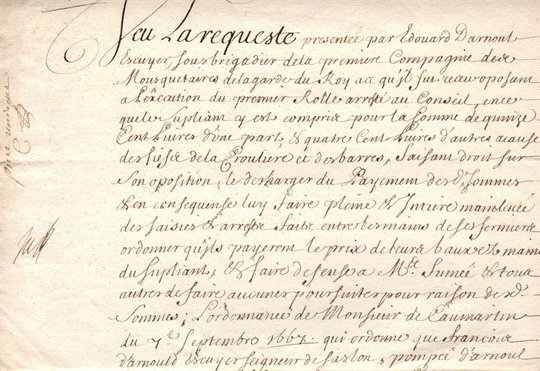 Veu La requeste presentée par Edouard Darnoul
Escuyer, sousbrigadier de la premiere Compagnie des
Mousquetaires de la garde du Roy a ce qu'il fut receu oposant
a l'execution du premier Rolle arresté au Conseil, en ce
que le supliant y est compris pour la somme de quinze
Cent Livres d'une part, & quatre Cent Livres d'autre a cause
des fiefs de la et des barres, faisant droit sur
son oposition, le descharger du Payement desd. sommes
& en consequense luy faire pleine & Entiere mainlevée
des saisies & arrests faits entre les mains de ses fermiers
ordonner qu'ils payeront le prix de leurs baux ez mains
du supliant, & faire defense a Me. & tous
autres de faire aucunes poursuites pour raison desd.
sommes; L'ordonnance de Monsieur de Caumartin
du 7e. Septembre 1667. qui ordonne que francois
d'arnould Escuyer seigneur de & pompée d'arnoul